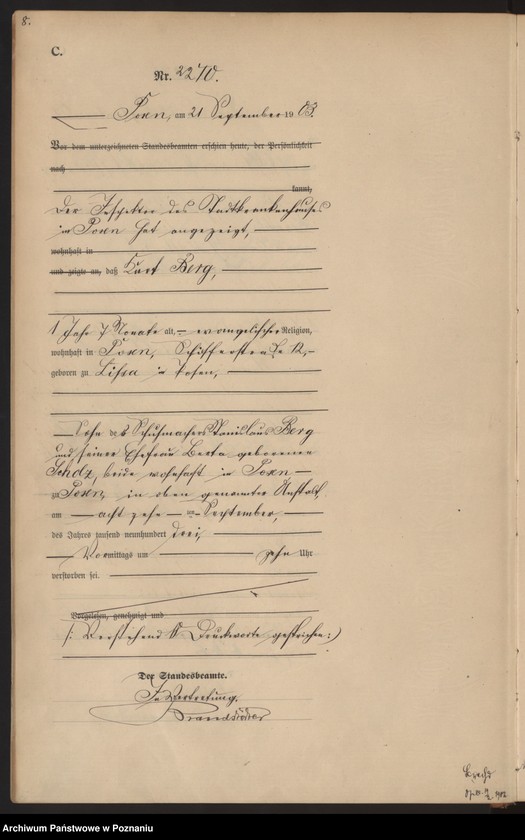 8.
C.
Nr. 2270.
Posen, am 21 September 1903.
Vor dem unterzeichneten Standesbeamten erschien heute, der Persönlichkeit
nach
kannt,
Der Inspektor des Stadtkrankenhauses
in Posen hat angezeigt,
wohnhaft in
und zeigte an, daß Kurt Berg,
1 Jahr 7 Monate alt, evangelischer Religion,
wohnhaft in Posen, Schifferstraße
geboren zu Lissa in Posen,
Sohn des Schuhmachers Stanislaus Berg
und seiner Ehefrau Berta geborenen
beide wohnhaft in Posen
zu Posen, in oben genannter Anstalt
am acht zehn ten September,
des Jahres tausend neunhundert drei,
Vormittags um zehn Uhr
verstorben sei.
Vorgelesen, genehmigt und
/: Vorstehend Druckworte gestrichen :/
Der Standesbeamte.
In Vertretung.
Brandstädter
Archiwum Państwowe w Poznaniu